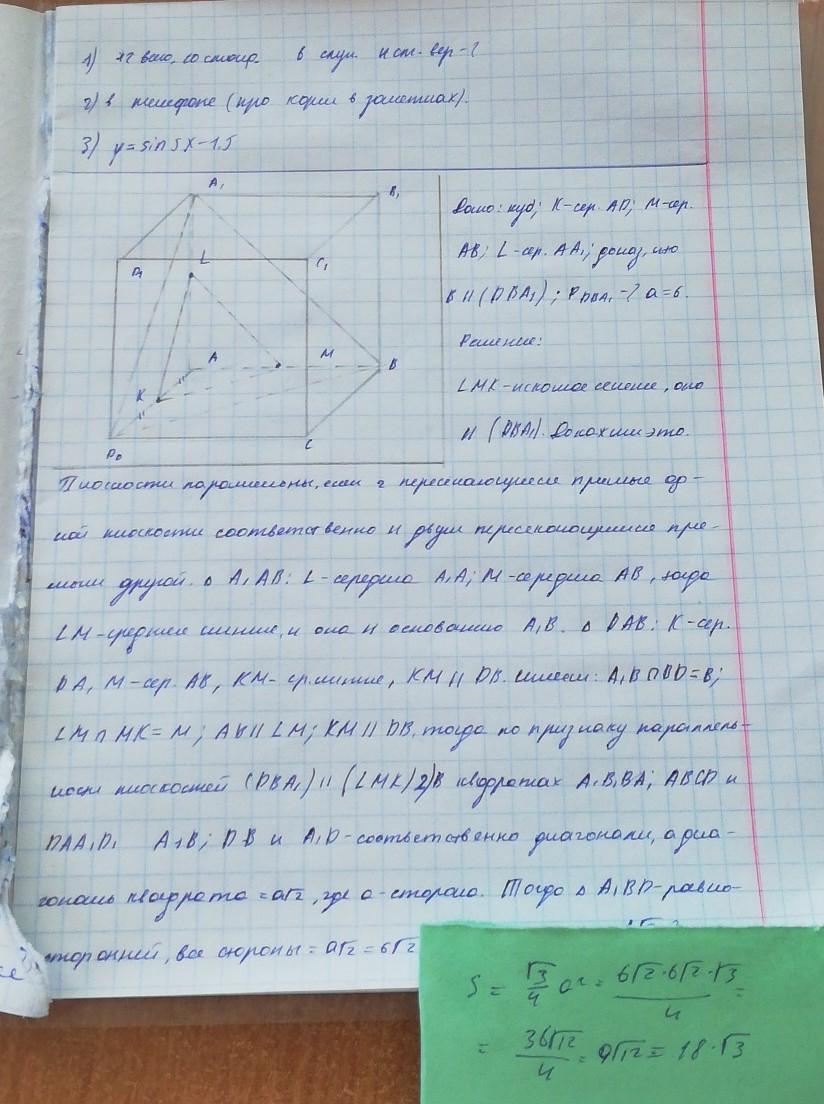 1) в случ. ист. вер-?
2) в телефоне (про корни в заметках).
3) y = sin5x-1,5
A₁ B₁
L
D₁ C₁
A M B
K
D₀ C
Дано: куб; K-сер. AD; M-сер.
AB; L-сер. AA₁; доказ, что
II (DBA₁); P DBA₁ -? a=6.
Решение:
LMK-искомое сечение, оно
II (DBA₁). Докажем это.
Плоскости параллельны, если 2 пересекающиеся прямые од-
ной плоскости соответственно II двум пересекающимся пря-
мым другой. Δ A₁AB: L-середина A₁A; M-середина AB, тогда
LM-средняя линия, и она II основанию A₁B. Δ DAB: K-сер.
DA, M-сер. AB, KM-ср.линия, KM II DB. имеем: A₁B∩BD=B;
LM∩MK=M; II LM; KM II DB, тогда по признаку параллель-
ности плоскостей (DBA₁) II (LMK) 2) В квадратах A₁B₁BA; ABCD и
DAA₁D₁ A₁B; DB и A₁D-соответственно диагонали, а диа-
гональ квадрата = a√2, где a-сторона. Тогда Δ A₁BD-равно-
сторонний, все стороны = a√2 = 6√2
S = √3/4 a² = 6√2·6√2·√3/4 =
= 36√12/4 = 9√12 = 18·√3